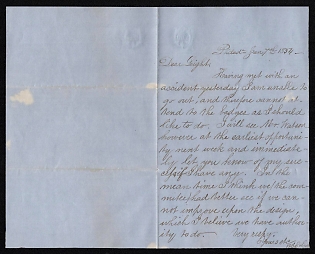 Dear Wright.
Having met with an
accident yesterday I am unable to
go out, and therefore cannot at-
tend to the badges as I should
like to do. I will see Mr. Watson
however at the earliest opportuni-
ty next week and immediate-
ly let you know of my suc-
cess if I have any. In the
mean time I think we/the com-
mittee had better see if we can-
not improve upon the design,
which I believe we have author-
ity to do.
Very respy.